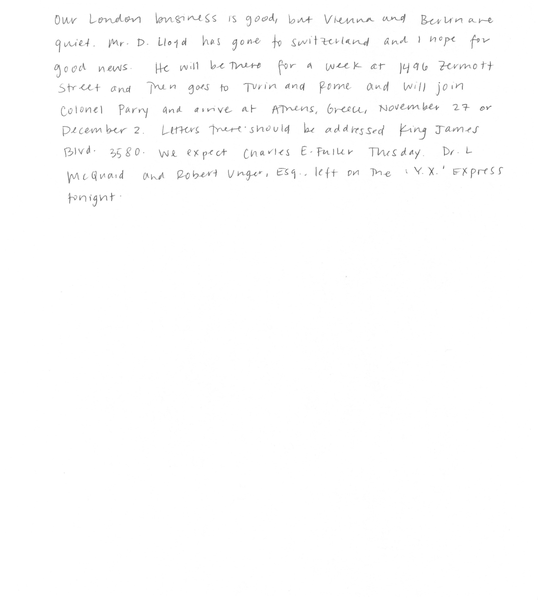 Our London business is good, but Vienna and Berlin are
quiet. Mr. D. Lloyd has gone to Switzerland and I hope for
good news. He will be there for a week at 1496 Zermott
Street and Then goes to Turin and Rome and will join
Colonel Parry and arrive at Athens, Greece, November 27 or
December 2. Letters there should be addressed King James
Blvd. 3580. We expect Charles E. Fuller Thesday. Dr. L
McQuaid and Robert Unger, Esq., left on The 'Y.X.' Express
tonight.